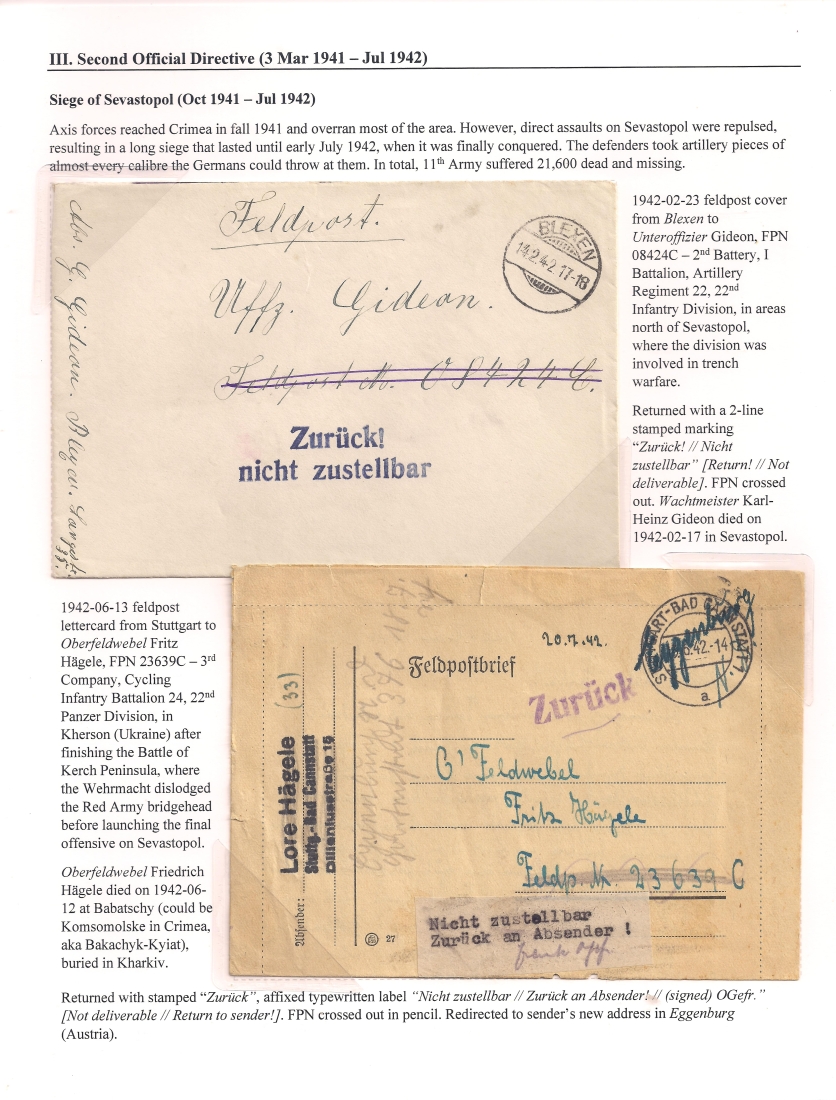 III. Second Official Directive (3 Mar 1941 – Jul 1942)
Siege of Sevastopol (Oct 1941 – Jul 1942)
Axis forces reached Crimea in fall 1941 and overran most of the area. However, direct assaults on Sevastopol were repulsed,
resulting in a long siege that lasted until early July 1942, when it was finally conquered. The defenders took artillery pieces of
almost every calibre the Germans could throw at them. In total, 11th Army suffered 21,600 dead and missing.
Abs. G. Gideon. Blexen. Langestr.
Feldpost.
BLEXEN
14.2.42.17-18
Uffz. Gideon.
Feldpost Nr. 08424C.
Zurück!
nicht zustellbar
1942-02-23 feldpost cover
from Blexen to
Unteroffizier Gideon, FPN
08424C – 2nd Battery, I
Battalion, Artillery
Regiment 22, 22nd
Infantry Division, in areas
north of Sevastopol,
where the division was
involved in trench
warfare.
Returned with a 2-line
stamped marking
“Zurück! // Nicht
zustellbar” [Return! // Not
deliverable]. FPN crossed
out. Wachtmeister Karl-
Heinz Gideon died on
1942-02-17 in Sevastopol.
1942-06-13 feldpost
lettercard from Stuttgart to
Oberfeldwebel Fritz
Hägele, FPN 23639C – 3rd
Company, Cycling
Infantry Battalion 24, 22nd
Panzer Division, in
Kherson (Ukraine) after
finishing the Battle of
Kerch Peninsula, where
the Wehrmacht dislodged
the Red Army bridgehead
before launching the final
offensive on Sevastopol.
Oberfeldwebel Friedrich
Hägele died on 1942-06-
12 at Babatschy (could be
Komsomolske in Crimea,
aka Bakachyk-Kyiat),
buried in Kharkiv.
Absender:
Lore Hägele
Stuttg.-Bad Cannstatt
Dilleniusstraße 15
(33)
20.7.42.
Feldpostbrief
Zurück
Eggenburg
a
O'Feldwebel
Fritz Hägele
Feldp. Nr. 23639 C
27
Nicht zustellbar
Zurück an Absender !
Returned with stamped “Zurück”, affixed typewritten label “Nicht zustellbar // Zurück an Absender! // (signed) OGefr.”
[Not deliverable // Return to sender!]. FPN crossed out in pencil. Redirected to sender’s new address in Eggenburg
(Austria).